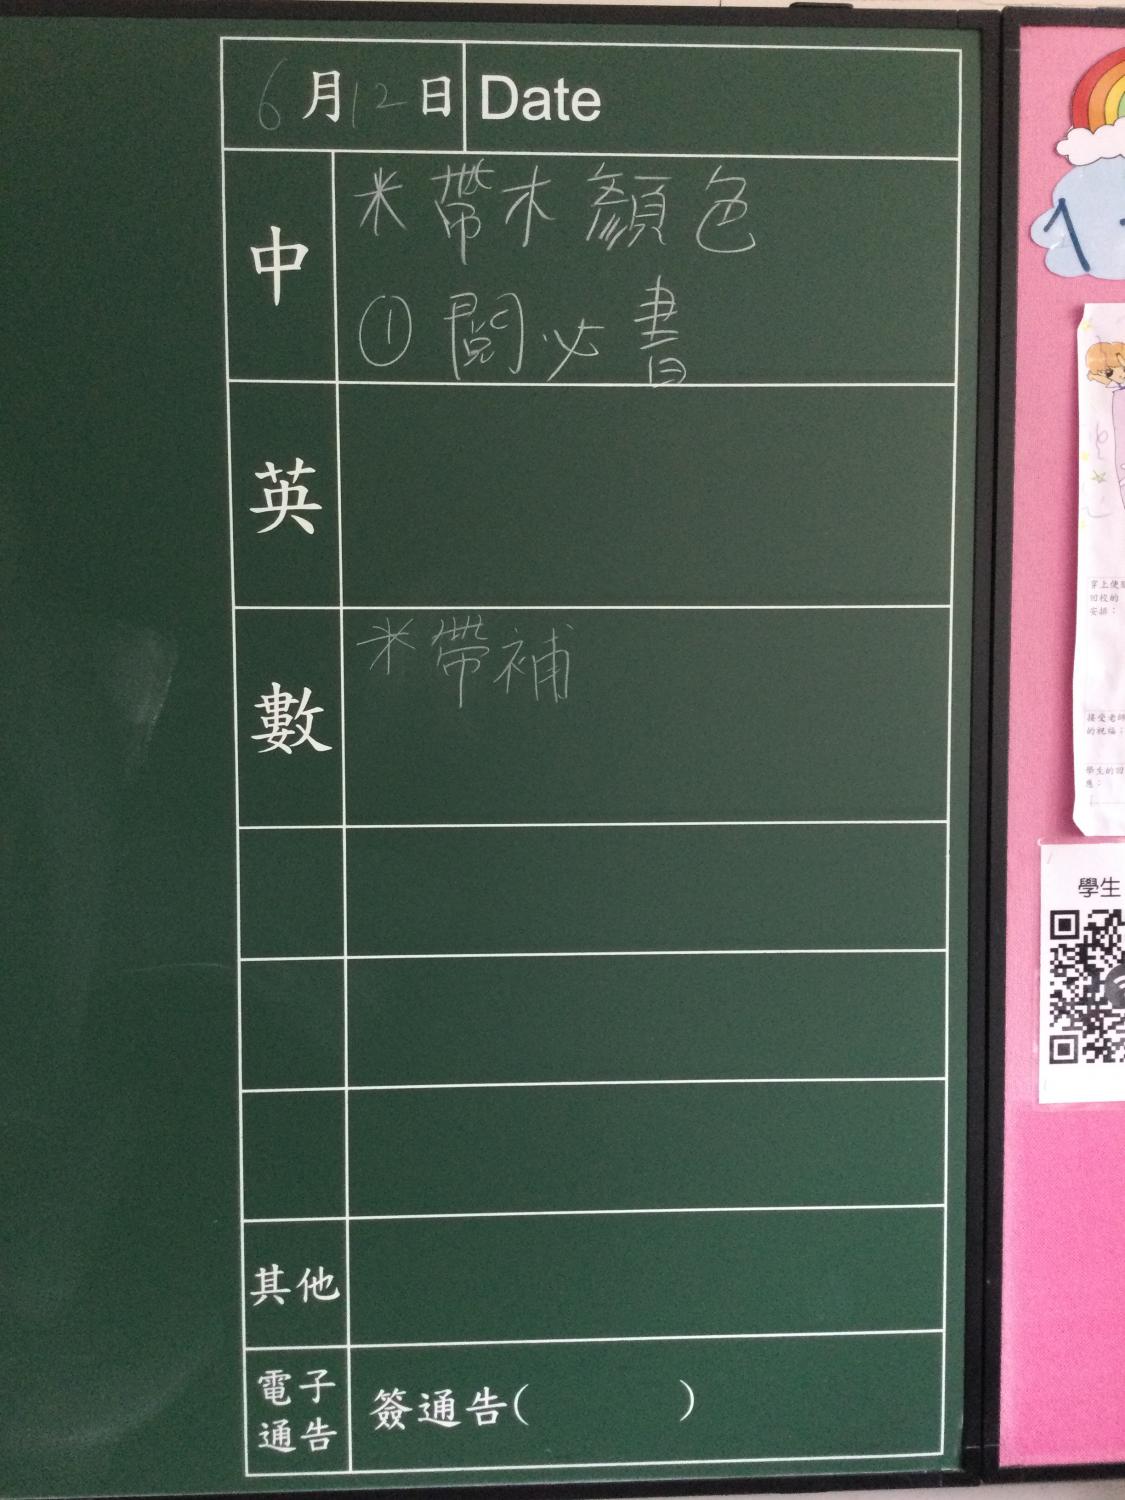 6月12日 Date
中
※帶木顏色
① 閱必書
英
數
※帶補
其他
電子
通告
簽通告( )
穿上便服
回校的
安排：
接受老師
的祝福：
學生的回
應：
學生